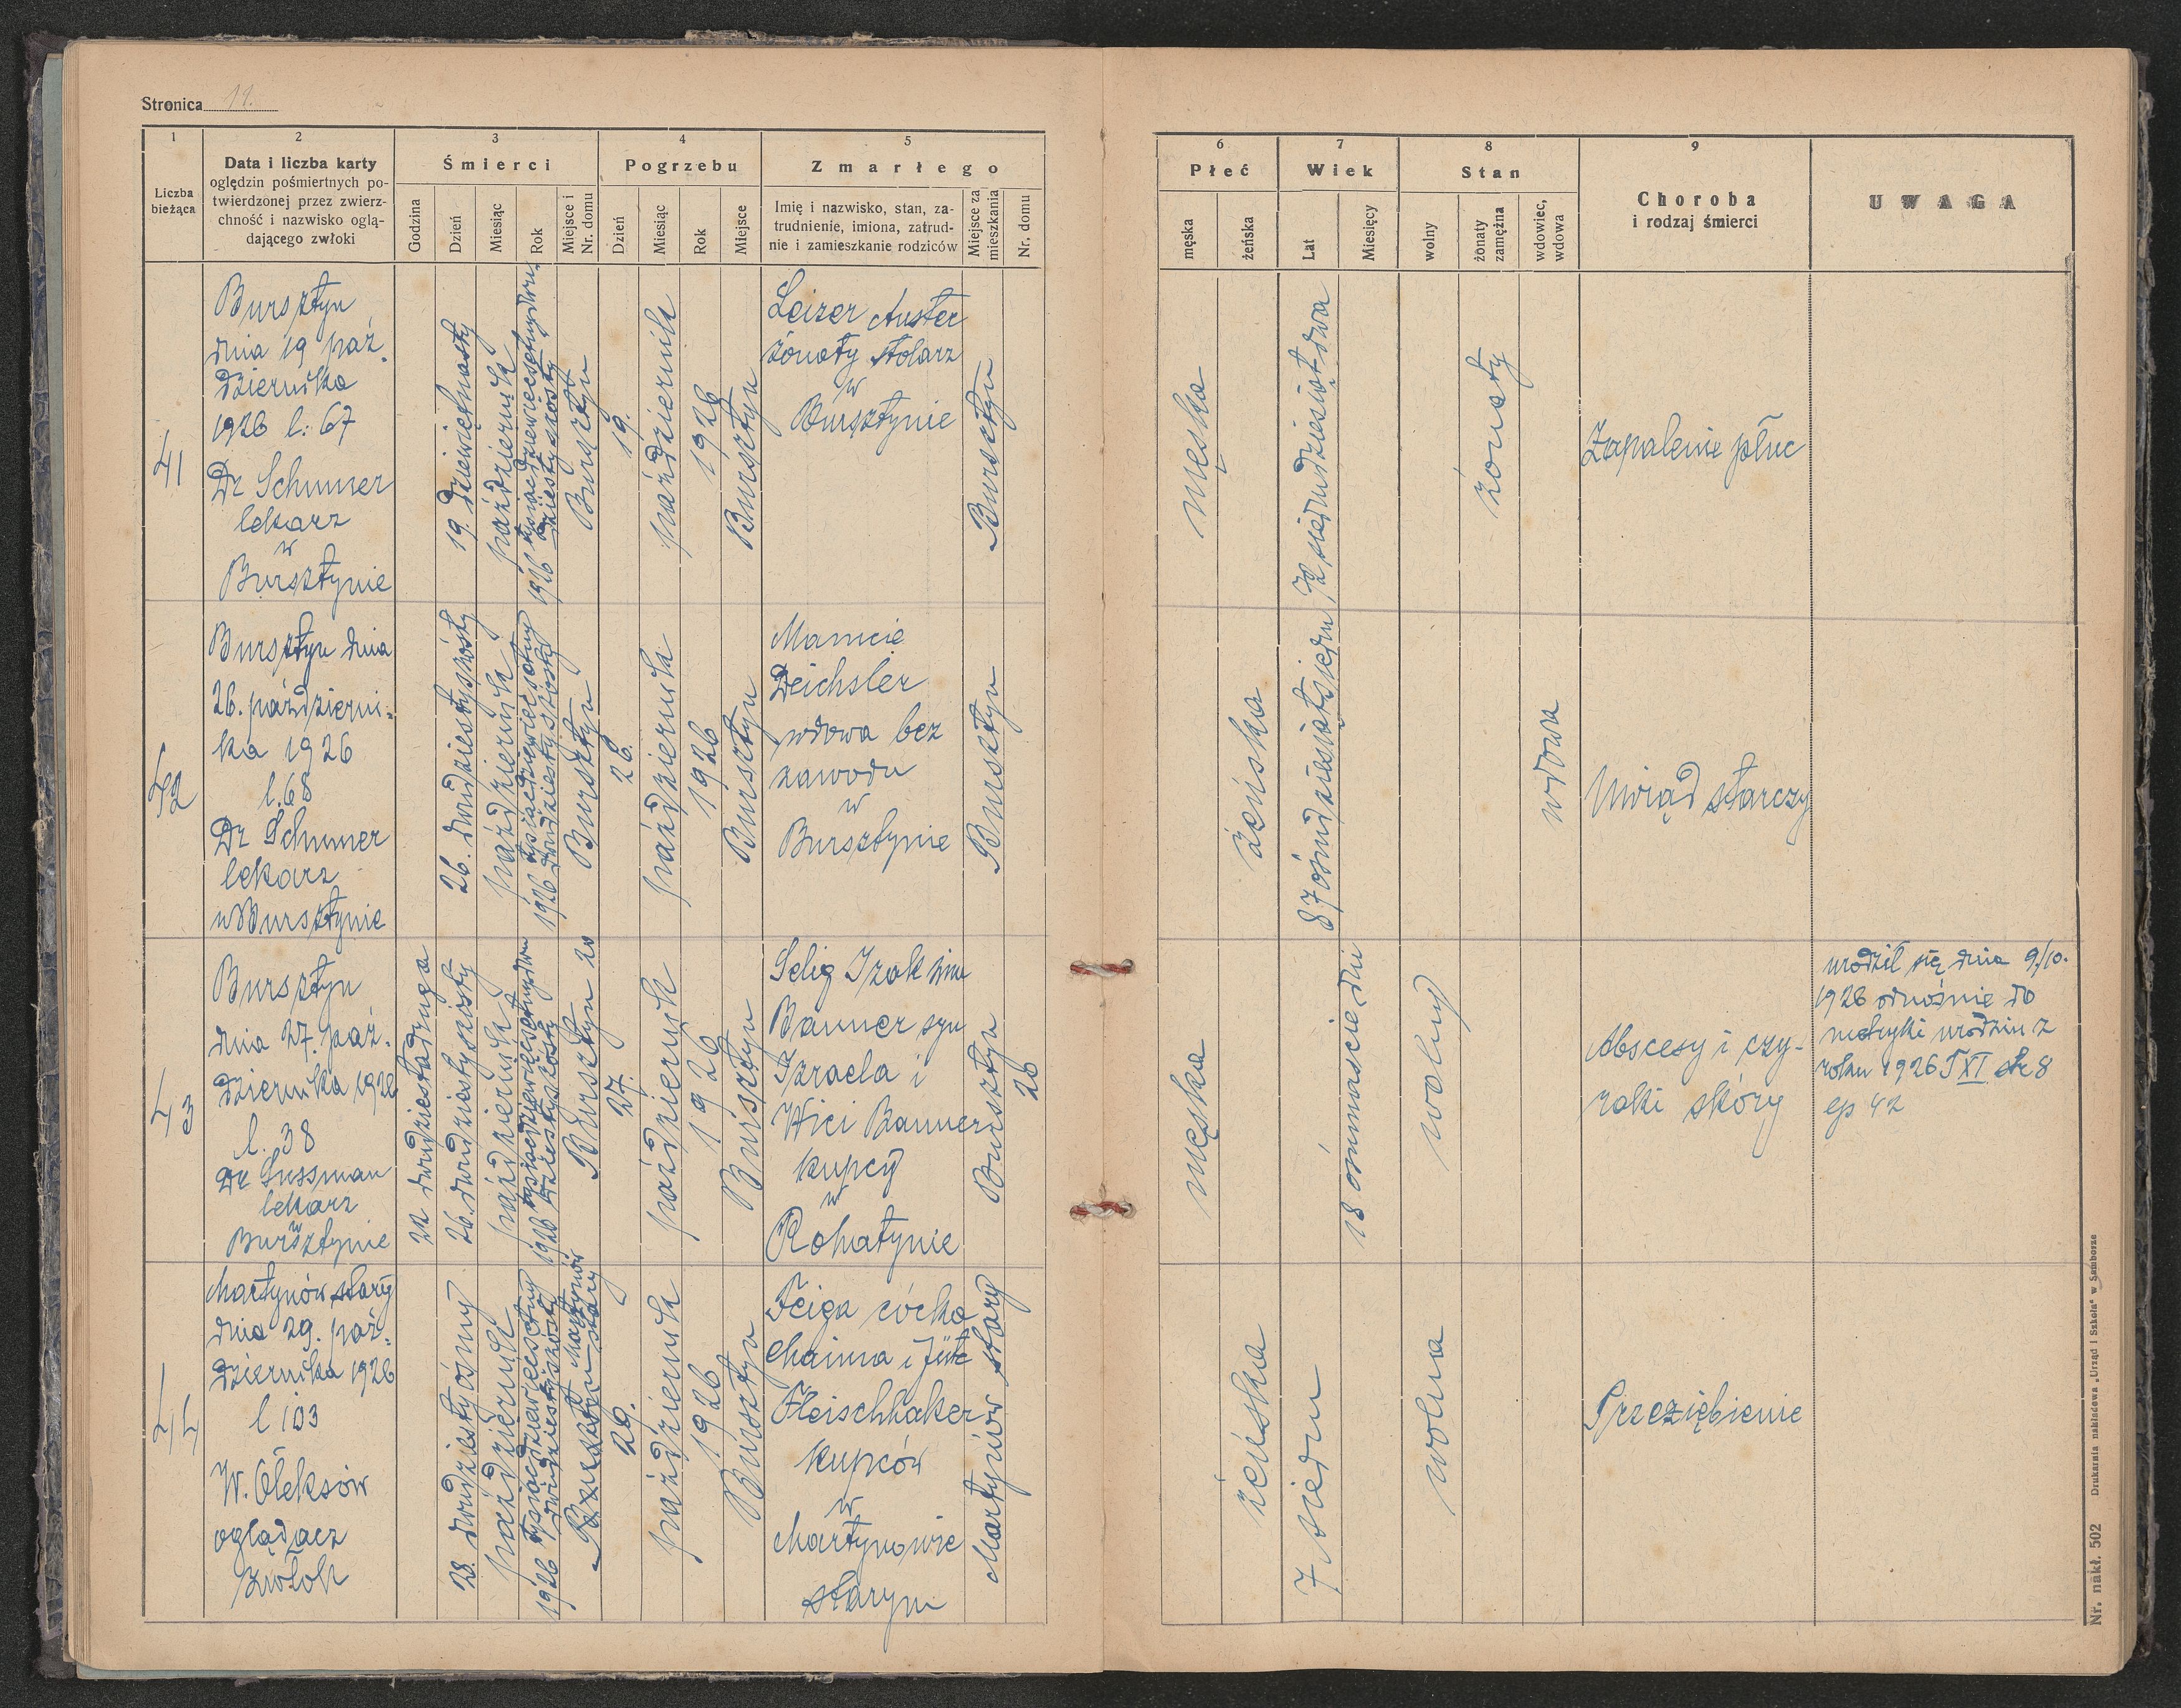 Stronica 11.
1
2
3
4
5
Liczba
bieżąca
Data i liczba karty
oględzin pośmiertnych po-
twierdzonej przez zwierz-
chność i nazwisko oglą-
dającego zwłoki
Śmierci
Godzina
Dzień
Miesiąc
Rok
Miejsce i
Nr. domu
Pogrzebu
Dzień
Miesiąc
Rok
Miejsce
Zmarłego
Imię i nazwisko, stan, za-
trudnienie, imiona, zatrud-
nie i zamieszkanie rodziców
Miejsce za
mieszkania
Nr. domu
6
7
8
9
Płeć
męska
żeńska
Wiek
Lat
Miesięcy
Stan
wolny
żonaty
zamężna
wdowiec,
wdowa
Choroba
i rodzaj śmierci
UWAGA
41
Bursztyn
dnia 19 paź
dziernika
1926 l: 67
Dr Schumer
lekarz
w
Bursztynie
19. dziewiętnasty
październik
1926 tysiąc dziewięćsetny dwu
dziesty szósty
Bursztyn
19.
październik
1926
Bursztyn
Leizer Auster
żonaty stolarz
w
Bursztynie
Bursztyn
męska
72 siedmdziesiąt dwa
żonaty
Zapalenie płuc
42
Bursztyn dnia
26. październi-
ka 1926
l. 68
Dr Schumer
lekarz
w Bursztynie
26. dwudziesty szósty
październik
1926 tysiąc dziewięćsetny
dwudziesty szósty
Bursztyn
26.
październik
1926
Bursztyn
Mamcie
Deichsler
wdowa bez
zawodu
w
Bursztynie
Bursztyn
żeńska
87 ośmdziesiąt siedm
wdowa
Uwiąd starczy
43
Bursztyn
dnia 27. paź-
dziernika 1926
l. 38
Dr Sussman
lekarz
w
Bursztynie
22 dwudziesta druga
26. dwudziesty szósty
październik
1926 tysiąc dziewięćsetny dwu
dziesty szósty
Bursztyn 26
27.
październik
1926
Bursztyn
Selig Izak
Banner syn
Izraela i
Banner
kupcy
w
Rohatynie
Bursztyn
26
męska
18 ośmnaście dni
wolny
Abscesy i czy-
raki skóry
urodził się dnia 9/10.
1926 odnośnie do
metryki urodzin z
roku 1926 T XI str 8
lp 42
44
Martynów stary
dnia 29. paź-
dziernika 1926
l 103
W. Oleksów
oglądacz
zwłok
28. dwudziesty ósmy
październik
1926 tysiąc dziewięćsetny
dwudziesty szósty
Bursztyn Martynów
stary
29.
październik
1926
Bursztyn
Feiga córka
Chaima i Jütte
Fleischhaker
kupców
w
Martynowie
starym
Martynów stary
żeńska
7 siedm
wolna
Przeziębienie
Nr. nakł. 502 Drukarnia nakładowa „Urząd i Szkoła" w Samborze